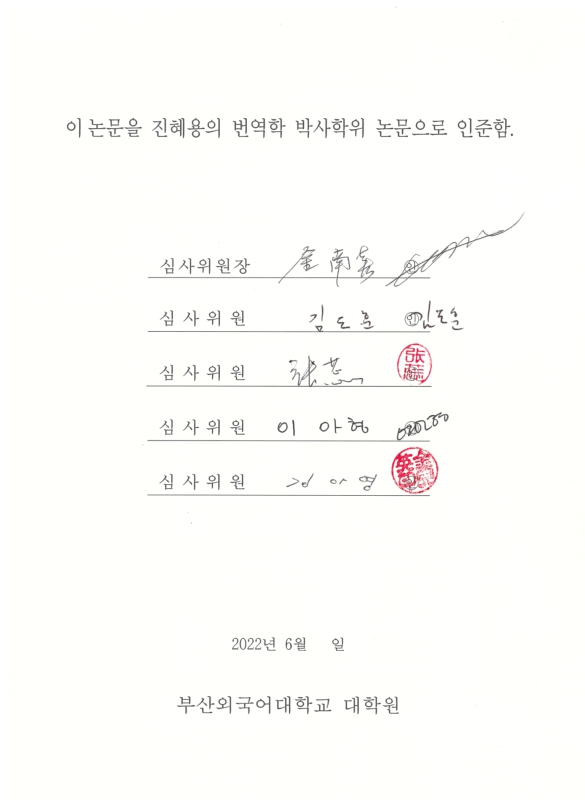 이 논문을 진혜용의 번역학 박사학위 논문으로 인준함.
심사위원장 金南喜 ㊞
심사위원 김도훈 ㊞ 김도훈
심사위원 张蕊 张蕊
심사위원 이아형
심사위원 정아영
2022년 6월 일
부산외국어대학교 대학원